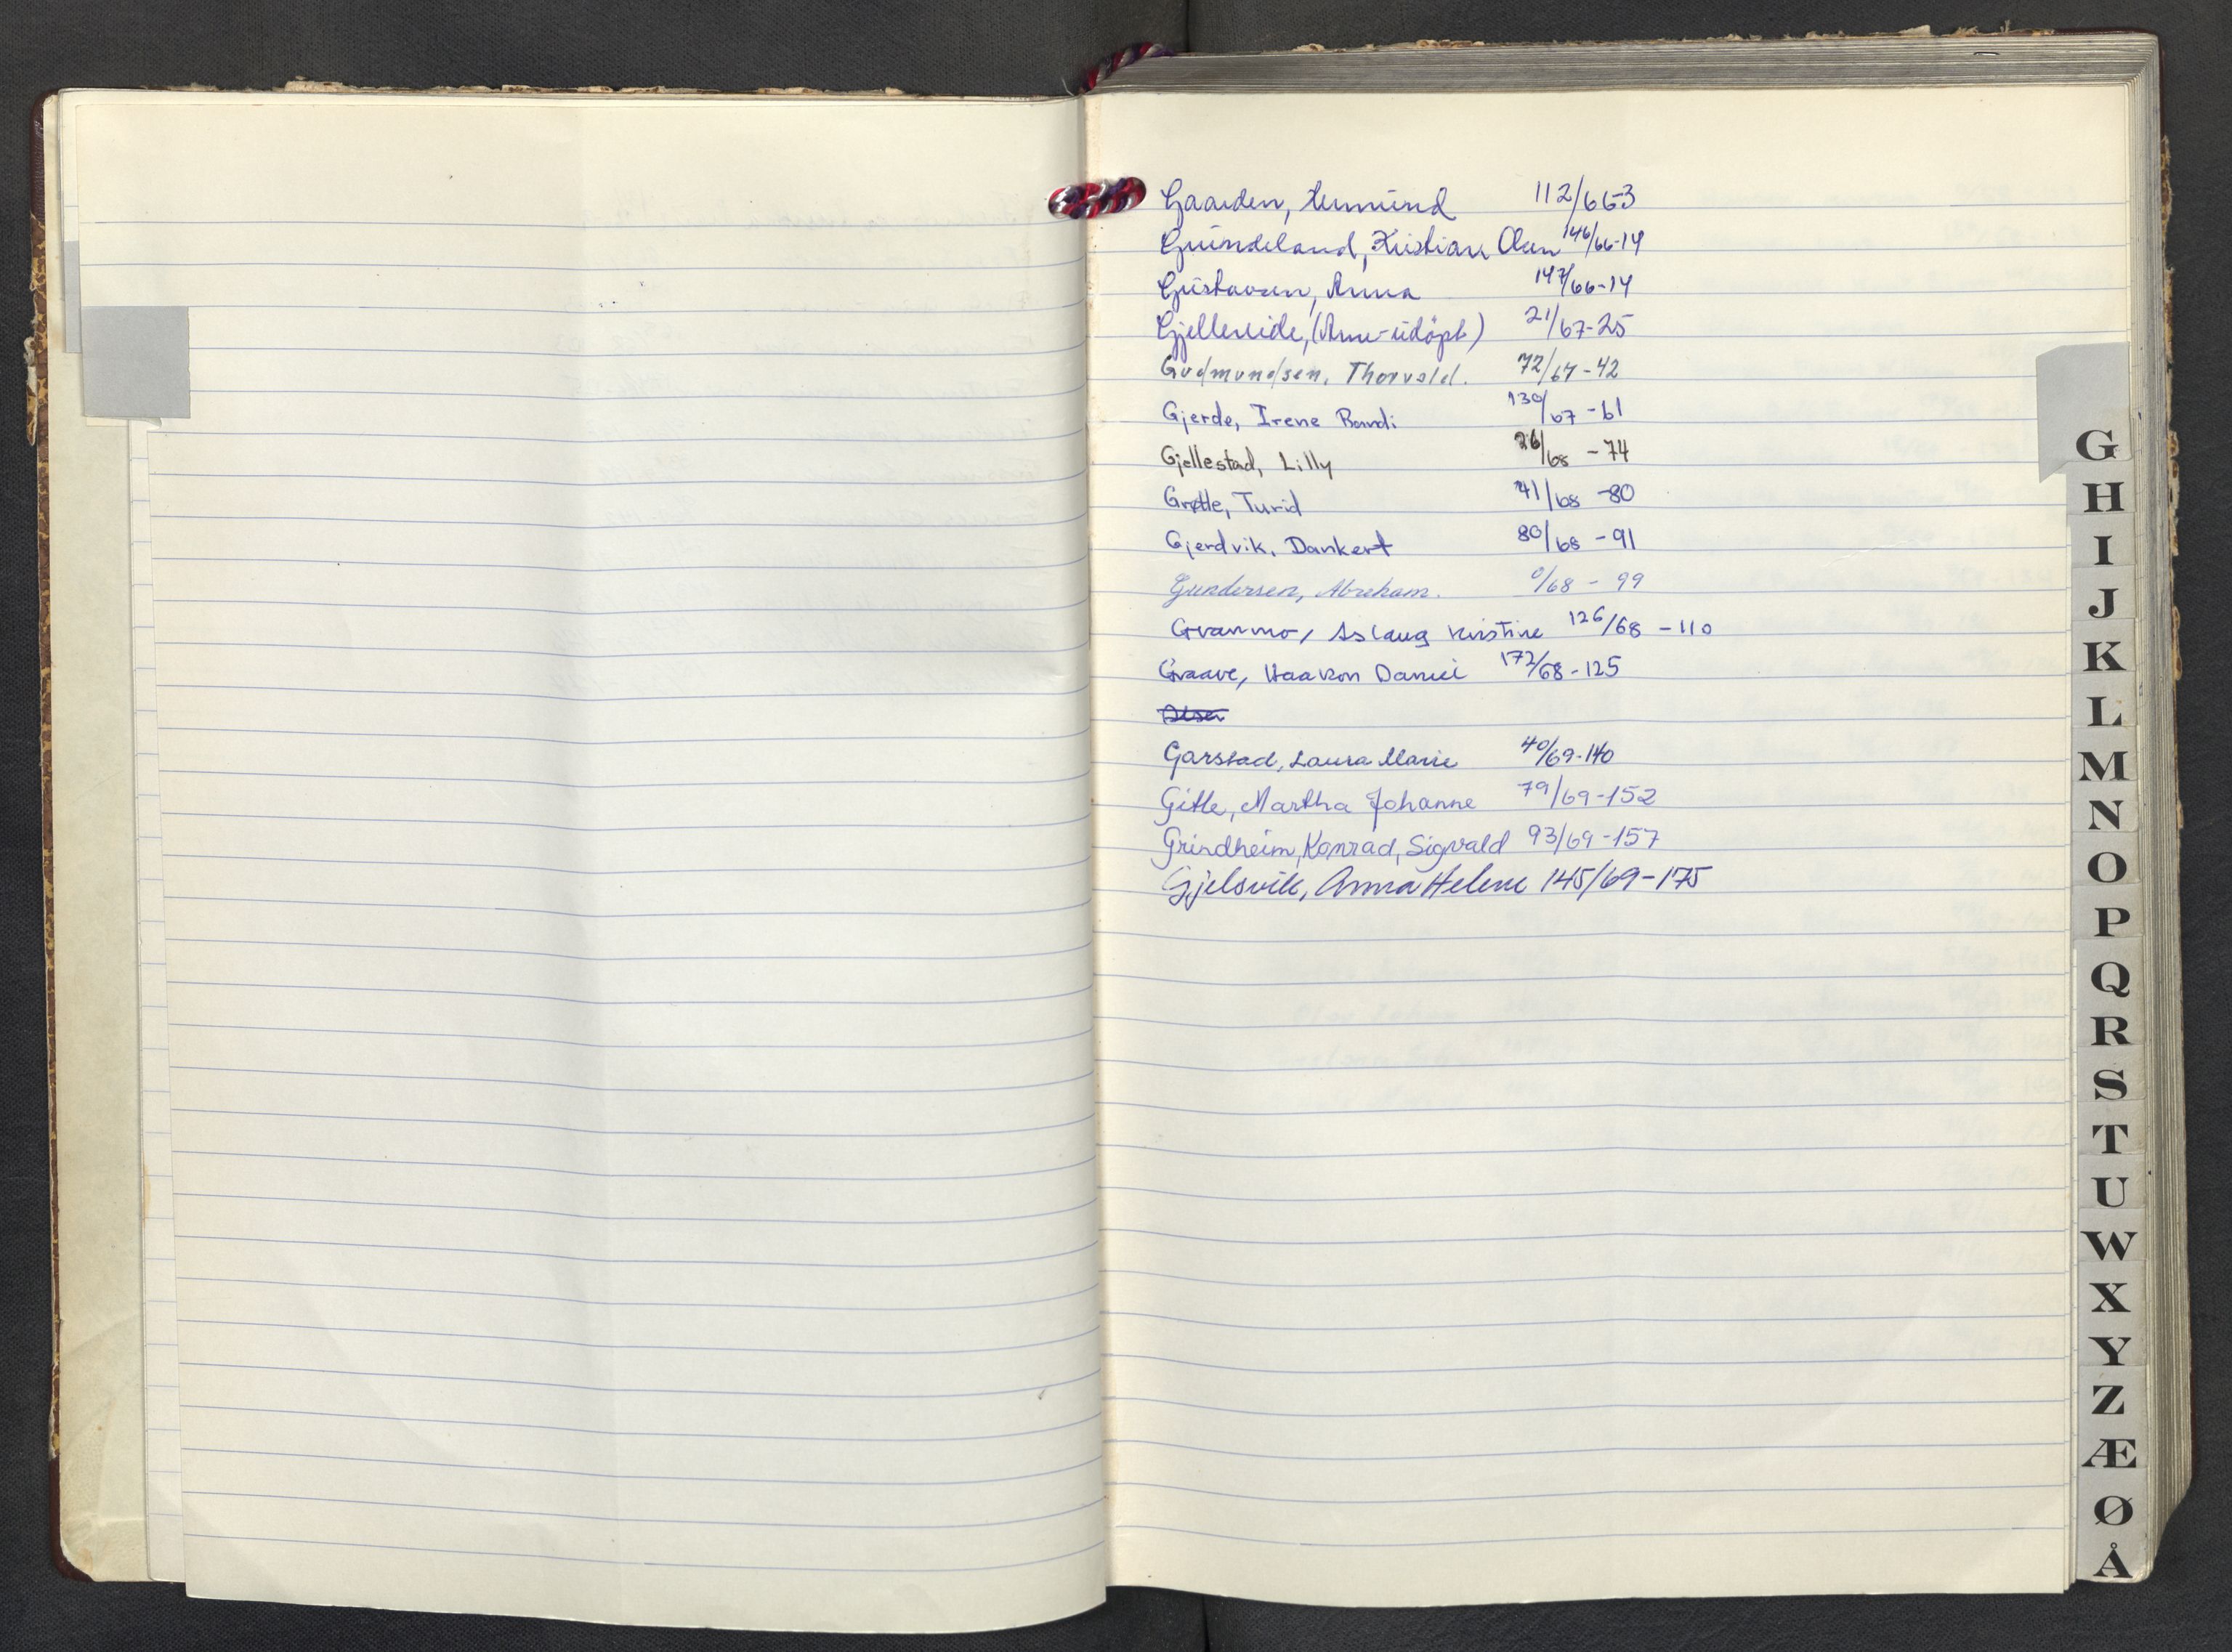 Gaarden, Aumund 112/66-3
Grundeland, Kristian Olsen 146/66-14
Gustavsen, Anna 147/66-14
Gjellereide, (Arne-udöpt) 21/67-25
Gudmundsen, Thorvald. 72/67-42
Gjerde, Irene Randi 130/67-61
Gjellestad, Lilly 26/68-74
Grøtte, Turid 41/68-80
Gjerdvik, Dankert 80/68-91
Gundersen, Abraham. 0/68-99
Granmo, Aslaug Kristine 126/68-110
Graave, Haakon Daniel 172/68-125
Garstad, Laura Marie 40/69-140
Gitle, Martha Johanne 79/69-152
Grindheim, Konrad, Sigvald 93/69-157
Gjelsvik, Anna Helene 145/69-175
G
H
I
J
K
L
M
N
O
P
Q
R
S
T
U
W
X
Y
Z
Æ
Ø
Å